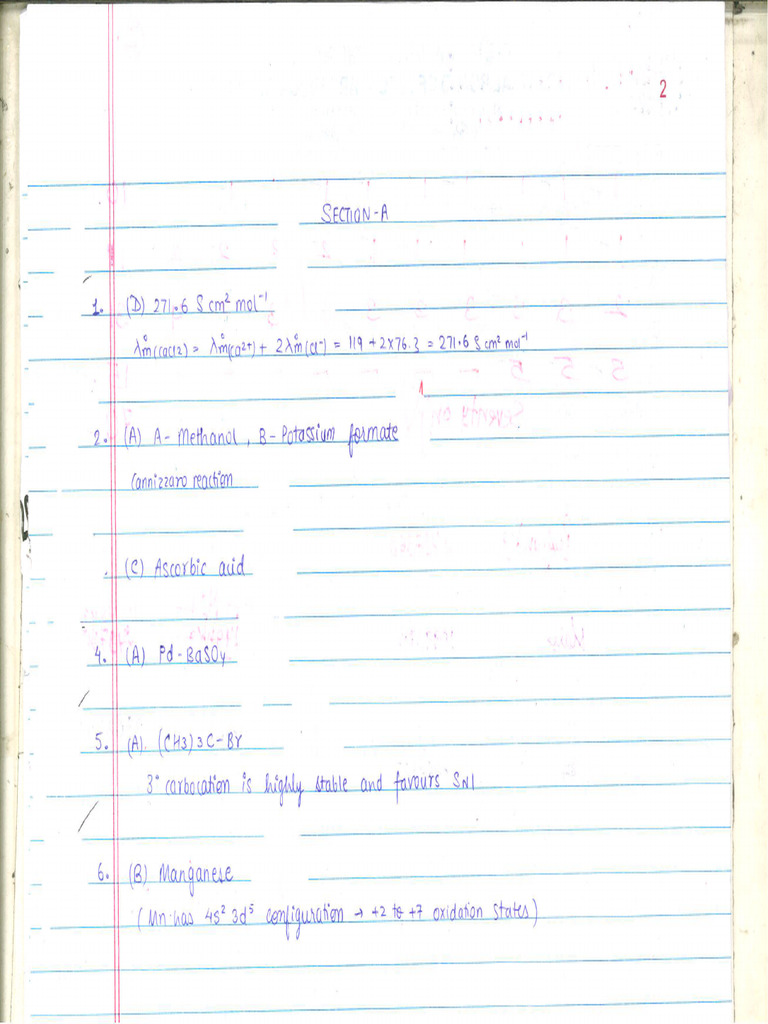 2
SECTION-A
1. (D) 271.6 S cm² mol⁻¹
λ°m(CaCl2) = λ°m(Ca2+) + 2λ°m(Cl-) = 119 + 2x76.3 = 271.6 S cm² mol⁻¹
1
2. (A) A- Methanol, B- Potassium formate
Cannizzaro reaction
(C) Ascorbic acid
4. (A) Pd-BaSO4
5. (A). (CH3)3C-Br
3° carbocation is highly stable and favours SN1
6. (B) Manganese
(Mn has 4s² 3d⁵ configuration → +2 to +7 oxidation states)